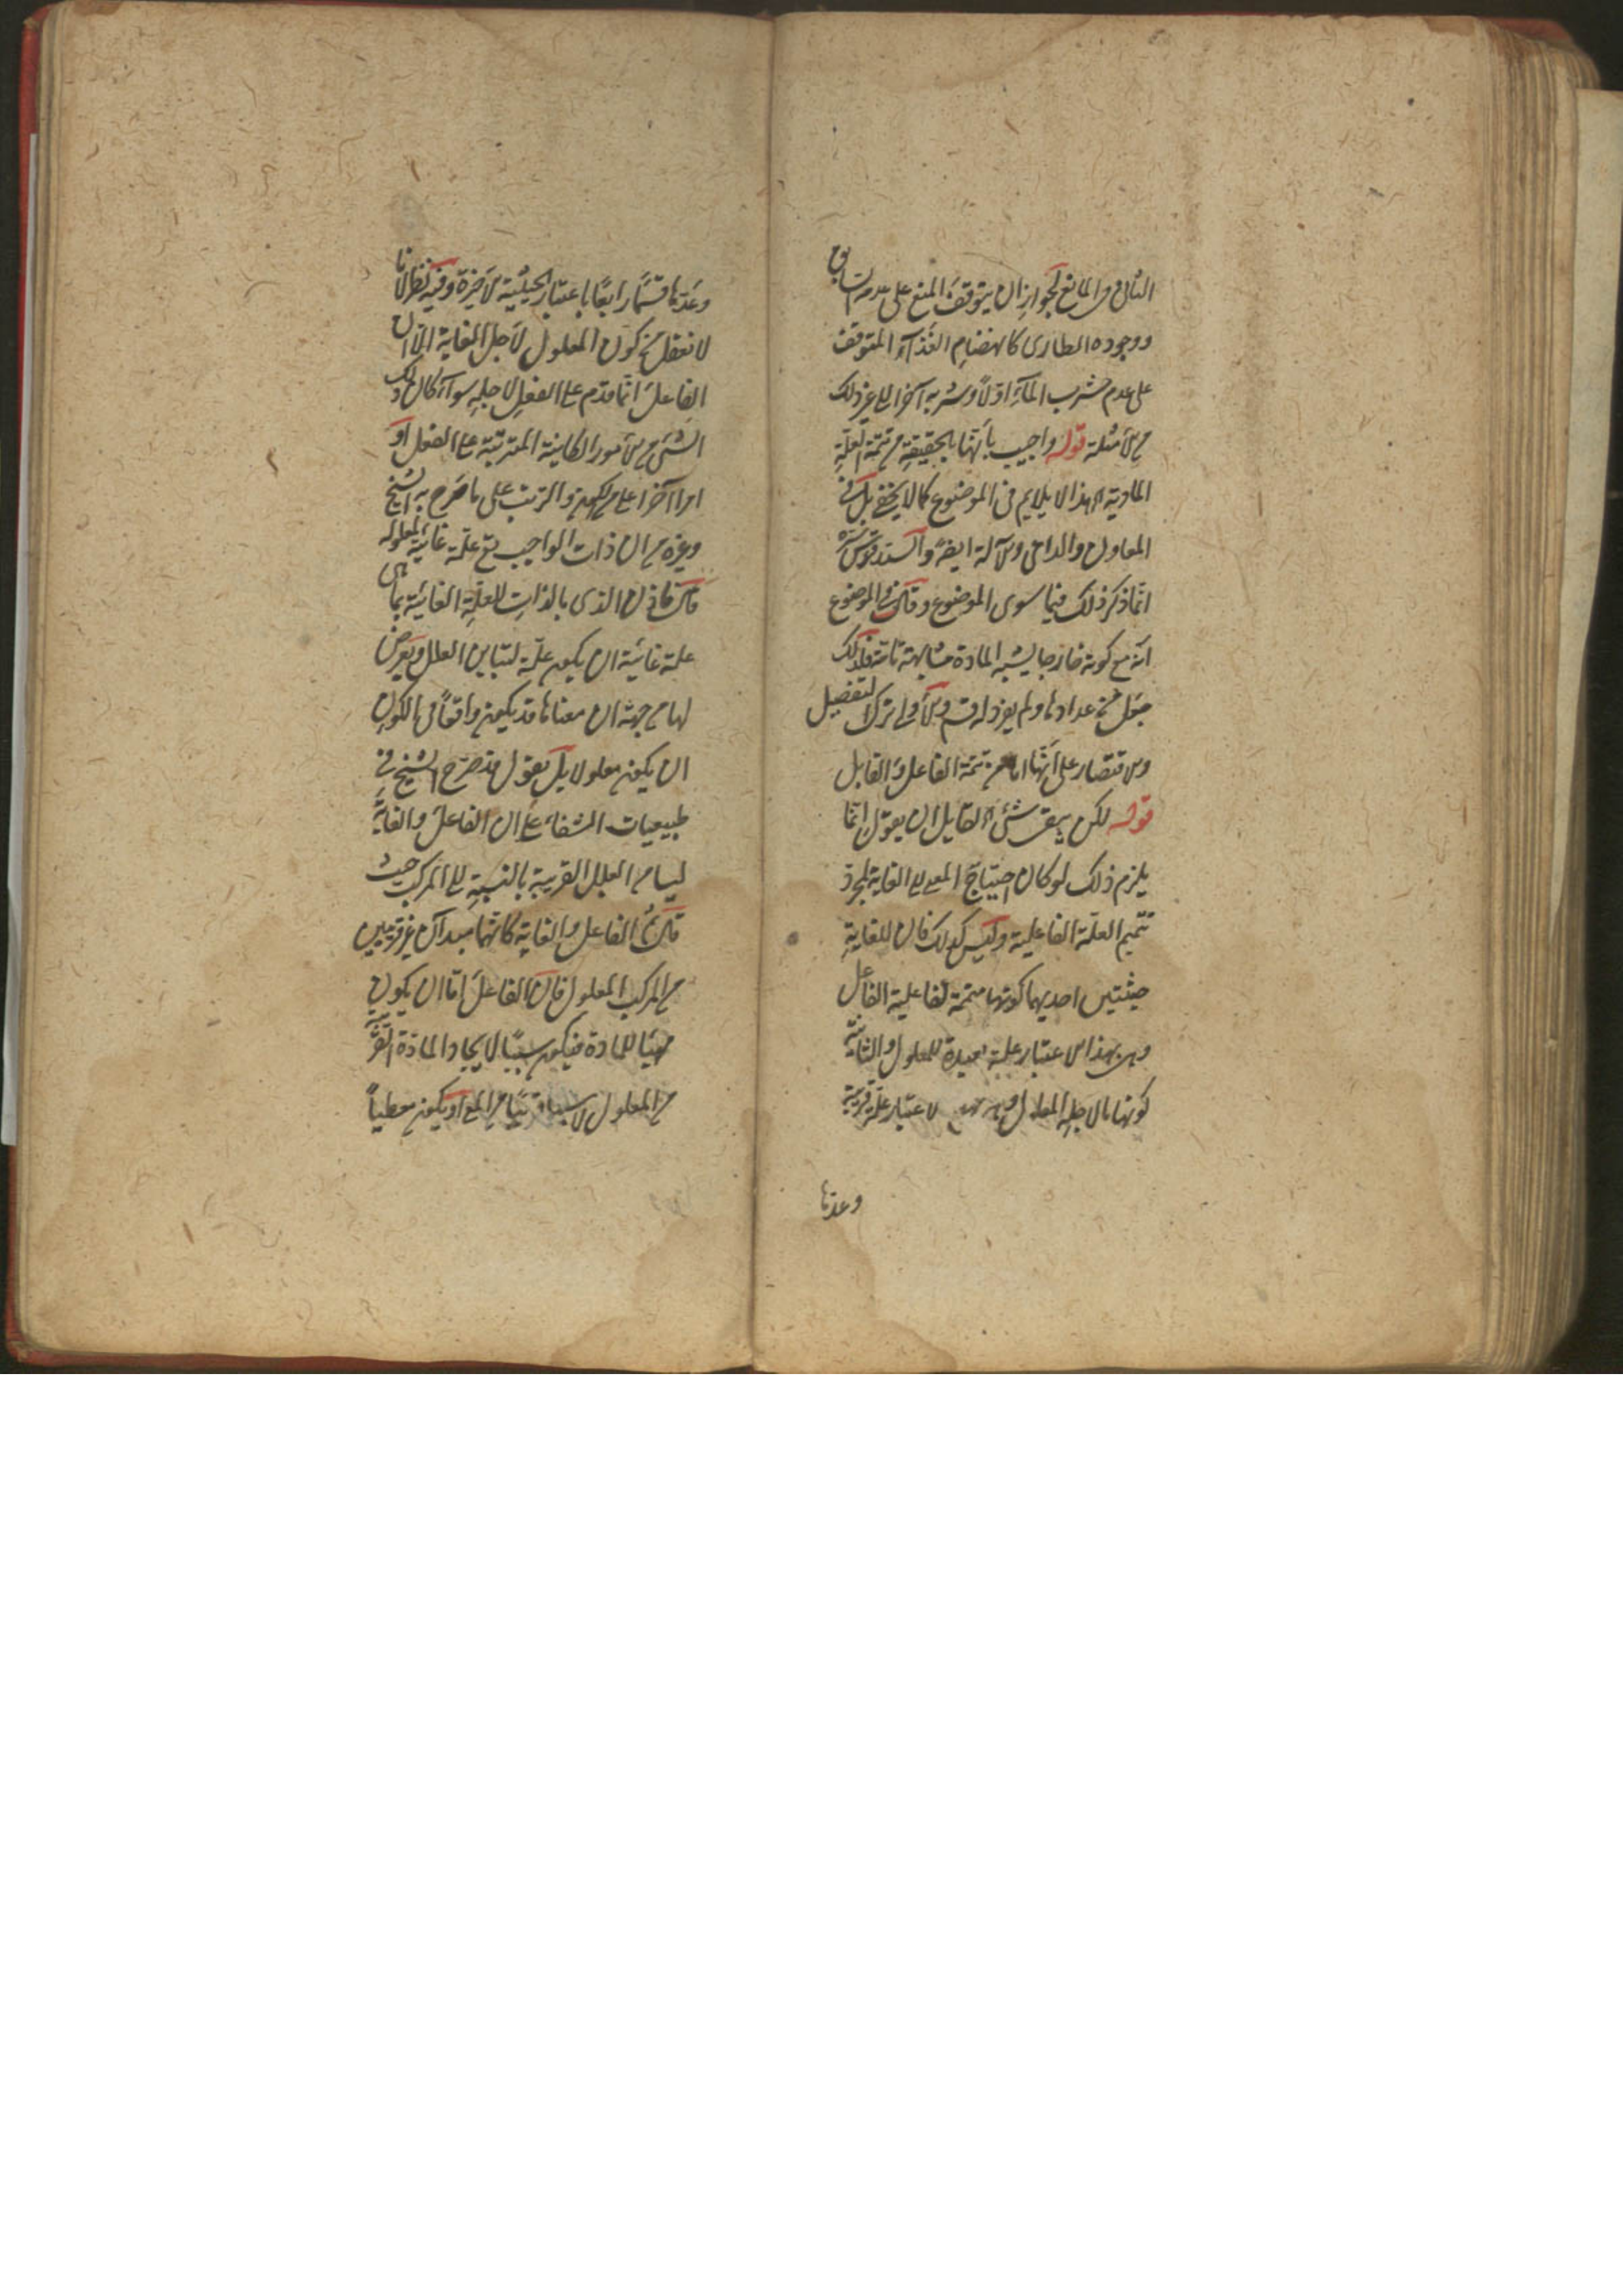 الثانى من المانع لجواز ان يتوقف المنع على عدمه السابق
ووجوده الطارى كانهضام الغذآء المتوقف
على عدم شرب المآء اولاً وشربه آخرا الى غير ذلك
من الامثلة قوله واجيب بانها بالحقيقة من تتمة العلة
المادية اه هذا لا يلايم فى الموضوع كما لا يخفى بل فى
المعاون والداعى والآلة ايضا والسيد قدس سره
انما ذكر ذلك فيما سوى الموضوع وقال فى الموضوع
انه مع كونه خارجا يشبه المادة مشابهة تامة فلذلك
جعل من عدادها ولم يفرد له قسم والاولى ترك التفصيل
والاقتصار على انها اما من تتمة الفاعل والقابل
قوله لكن يبقى شئ اه لقايل ان يقول انما
يلزم ذلك لو كان احتياج المعلول الى الغاية لمجرد
تتميم العلة الفاعلية وليس كذلك فان للغاية
حيثيتين احديهما كونها متممة لفاعلية الفاعل
وهى بهذا الاعتبار علة بعيدة للمعلول والثانية
كونها ما لاجله المعلول الاعتبار علة قريبة
وعدها
وعدها قسما رابعا باعتبار الحيثية الاخيرة وفيه نظر لانا
لا نعقل من كون المعلول لاجل الغاية الا ان
الفاعل انما قدم على الفعل لاجله سوآء كان ذلك
الشئ من الامور الكاينة المترتبة على الفعل او
امرا آخر اعلى من الكون والترتب على ما صرح به الشيخ
وغيره من ان ذات الواجب تع علة غائية لمعلوله
قال فاذن الذى بالذات للعلة الغائية بما هى
علة غائية ان يكون علة لتباين العلل ويعرض
لها من جهة ان معناها قد يكون واقعاً فى الكون
ان يكون معلولا بل نقول قد صرح الشيخ فى
طبيعيات الشفاء على ان الفاعل والغاية
ليسا من العلل القريبة بالنسبة الى المركب حيث
قال الفاعل والغاية كانهما مبدآن غير قريبين
من المركب المعلول فان الفاعل اما ان يكون
مهيئا للمادة فيكون سببا لايجاد المادة القريبة
من المعلول لا سببا قريبا من المع او يكون معطياً